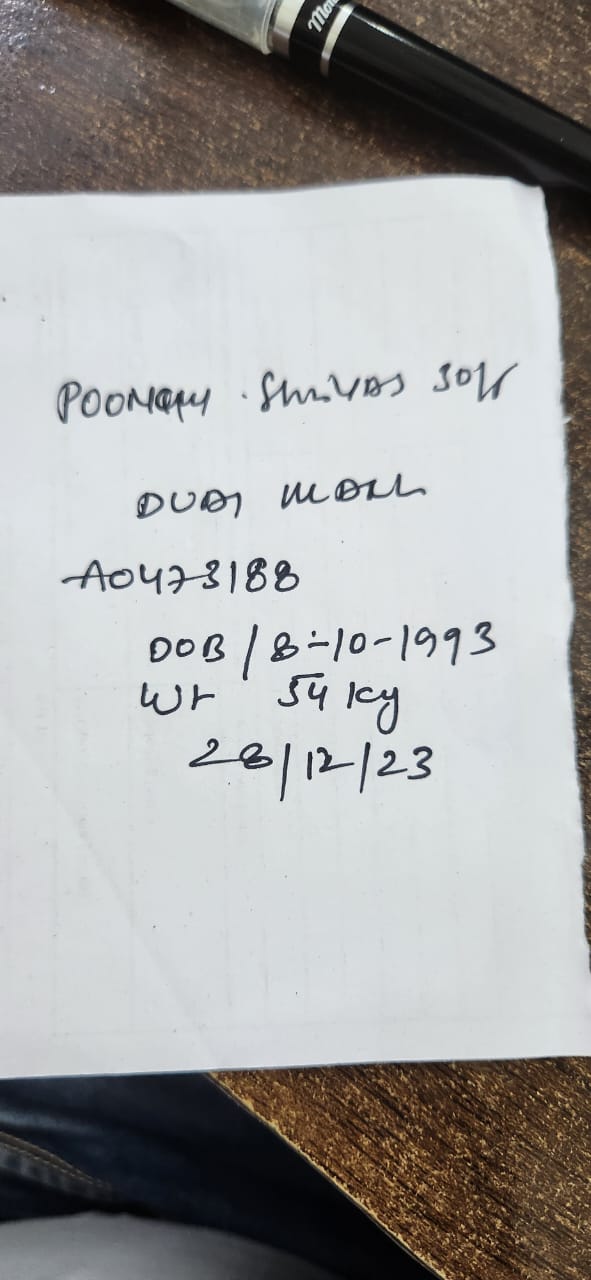 POONAM . Shrivas 30Y
DUAL MARKER
A0473188
DOB / 8-10-1993
Wt 54 kg
28/12/23